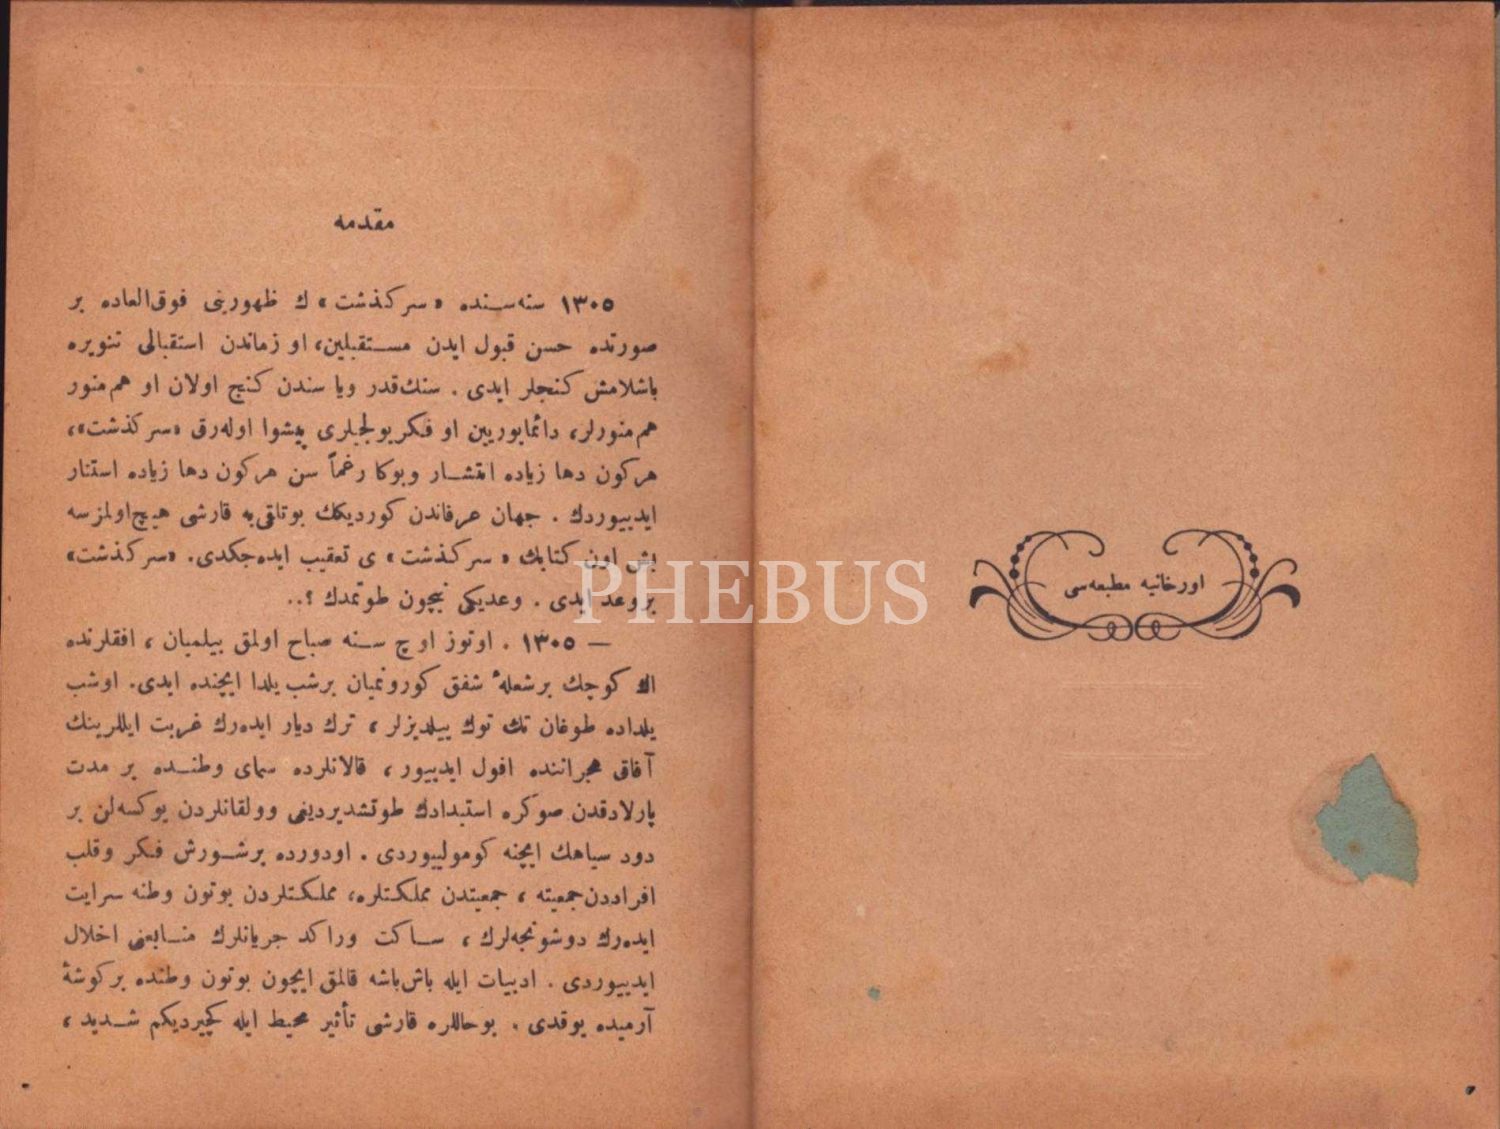 اورخانیه مطبعه‌سی
مقدمه
١٣٠٥ سنه‌سنده «سرکذشت» ك ظهورینی فوق‌العاده بر
صورتده حسن قبول ایدن مستقبلین، او زماندن استقبالی تنویره
باشلامش کنجلر ایدی . سنك‌قدر ویا سندن کنج اولان او هم‌منور
هم‌منورلر، دائمایوریین او فکریولجیلری پیشوا اوله‌رق «سرکذشت»،
هرکون دها زیاده انتشار وبوکا رغماً سن هرکون دها زیاده استتار
ایدییوردك . جهان عرفاندن کوردیکك بوتلقی‌یه قارشی هیچ‌اولمزسه
بش اون کتابك «سرکذشت» ی تعقیب ایده‌جکدی. «سرکذشت»
بروعد ایدی . وعدیکی نیچون طوتمدك ؟..
— ١٣٠٥ . اوتوز اوچ سنه صباح اولمق بیلمیان ، افقلرنده
اك کوچك برشعلهٔ شفق کورونمیان برشب یلدا ایچنده ایدی. اوشب
یلداده طوغان تك توك ییلدیزلر ، ترك دیار ایده‌رك غربت ایللرینك
آفاق هجراننده افول ایدییور ، قالانلرده سمای وطنده بر مدت
پارلادقدن صوکره استبدادك طوتشدیردیغی وولقانلردن یوکسه‌لن بر
دود سیاهك ایچنه کومولییوردی . اودورده برشورش فکر وقلب
افراددن‌جمعیته ، جمعیتدن مملکتلره، مملکتلردن بوتون وطنه سرایت
ایده‌رك دوشونجه‌لرك ، ساکت وراکد جریانلرك منابعنی اخلال
ایدییوردی . ادبیات ایله باش‌باشه قالمق ایچون بوتون وطنده برکوشهٔ
آرمیده یوقدی . بوحاللره قارشی تأثیر محیط ایله کچیردیکم شدید ،
PHEBUS